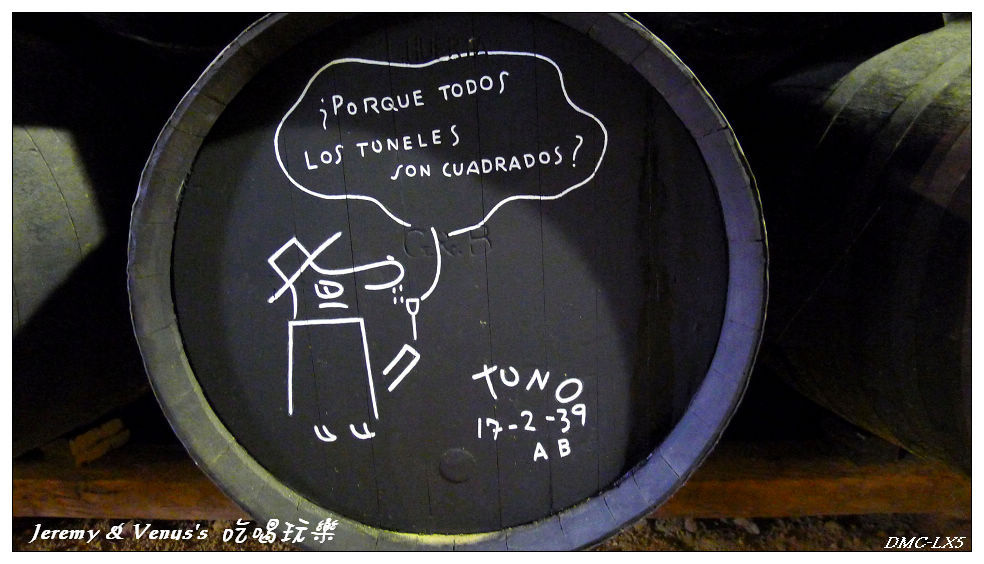 ¿PORQUE TODOS
LOS TUNELES
SON CUADRADOS?
G & B
TONO
17-2-39
A B
Jeremy & Venus's 吃喝玩樂
DMC-LX5